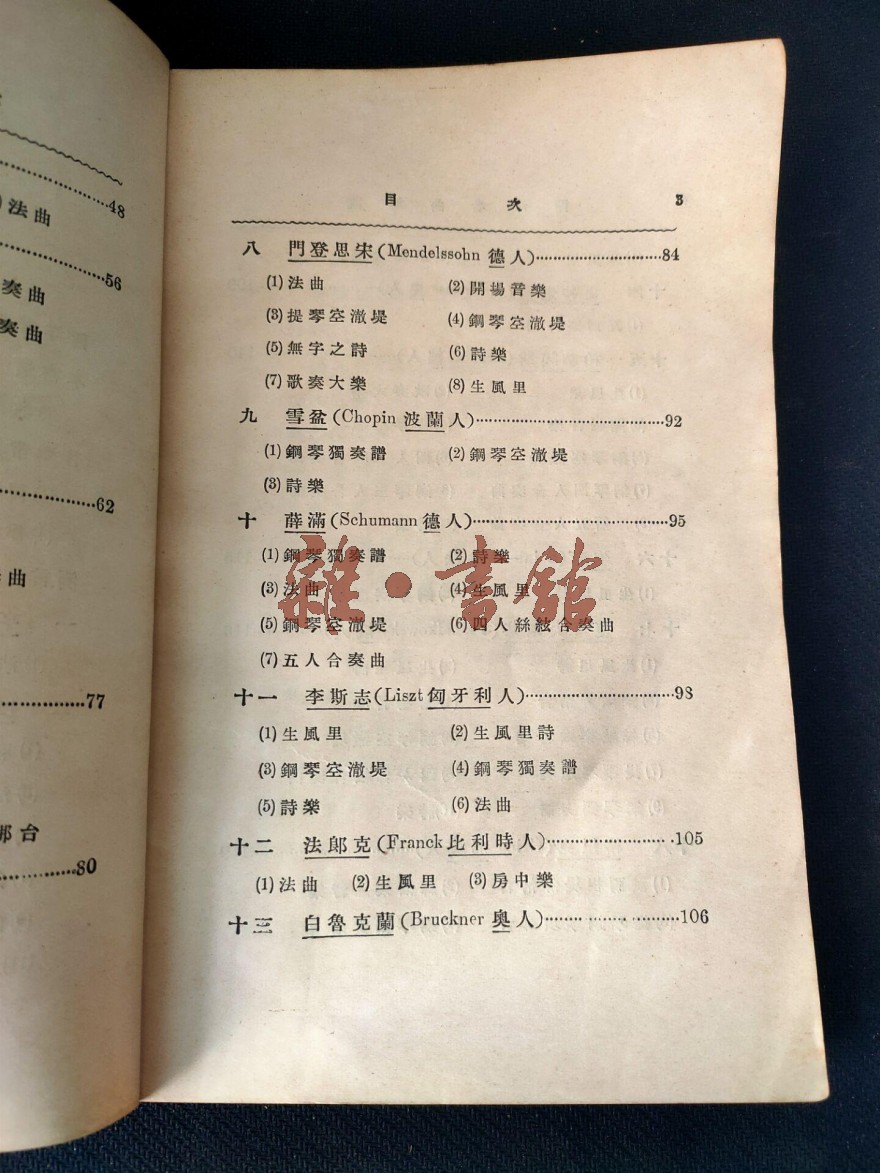 48
法曲
56
奏曲
奏曲
62
曲
77
台
80
目次 3
八 門登思宋(Mendelssohn 德人)······84
(1)法曲 (2)開場音樂
(3)提琴空澈堤 (4)鋼琴空澈堤
(5)無字之詩 (6)詩樂
(7)歌奏大樂 (8)生風里
九 雪盆(Chopin 波蘭人)······92
(1)鋼琴獨奏譜 (2)鋼琴空澈堤
(3)詩樂
十 薛滿(Schumann 德人)······95
(1)鋼琴獨奏譜 (2)詩樂
(3)法曲 (4)生風里
(5)鋼琴空澈堤 (6)四人絲絃合奏曲
(7)五人合奏曲
十一 李斯志(Liszt 匈牙利人)······98
(1)生風里 (2)生風里詩
(3)鋼琴空澈堤 (4)鋼琴獨奏譜
(5)詩樂 (6)法曲
十二 法郎克(Franck 比利時人)······105
(1)法曲 (2)生風里 (3)房中樂
十三 白魯克蘭(Bruckner 奧人)······106
雜·書館